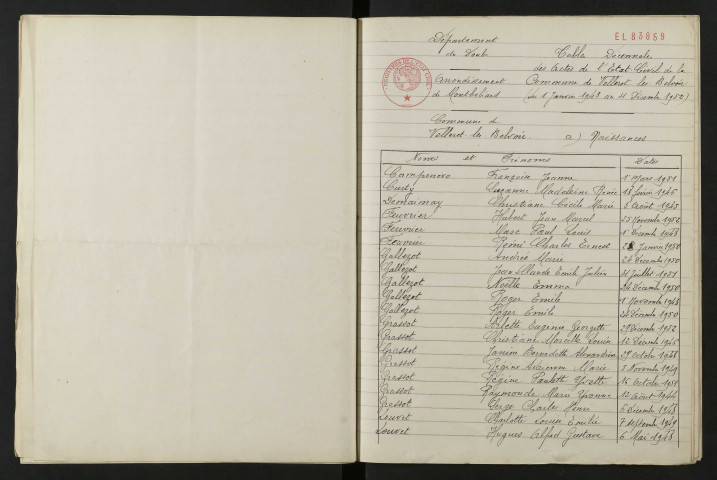 EL 83859
Département
du Doubs
Table Décennale
des Actes de l'Etat-Civil de la
Arrondissement Commune de Vellerot les Belvoir
de Montbéliard (du 1 Janvier 1943 au 31 Décembre 1952)
Commune de
Vellerot-les-Belvoir a) Naissances
Noms et Prénoms Dates
Françoise Jeanne 1 Mars 1951
Cuity Suzanne Madeleine Renée 18 1946
Christiane Cécile Marie 3 Août 1943
Feuvrier Hubert Jean Marcel 25 Novembre 1952
Feuvrier Marc Paul Louis 1 Décembre 1948
Feuvrier Rémi Charles Ernest Janvier 1950
Gallezot Andrée Marie 26 Décembre 1950
Gallezot Jean Claude Emile Julien 31 Juillet 1951
Gallezot Noëlle Emma 26 Décembre 1950
Gallezot Roger Emile 1 Novembre 1948
Gallezot Roger Emile 26 Décembre 1950
Grassot Arlette Eugénie Georgette 29 Décembre 1952
Grassot Christiane Marcelle Louise 12 Décembre 1945
Grassot Janine Bernadette Alexandrine 29 Octobre 1948
Grassot Régine Marie 3 Novembre 1949
Grassot Régine Paulette Yvette 16 Octobre 1951
Grassot Raymonde Marie Yvonne 12 Août 1944
Grassot Serge Charles Henri 6 Décembre 1948
Louvet Charlotte Louise Emilie 7 Septembre 1949
Louvet Hugues Alfred Gustave 6 Mai 1948